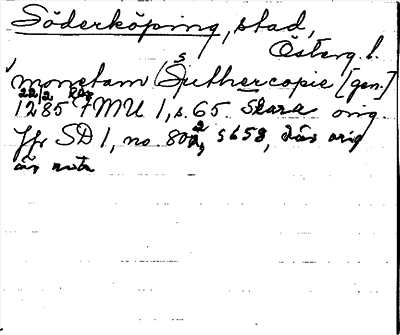 Söderköping, stad,
Österg l.
monetam Suthercopie [gen.]
22/2
1285 FMU 1, s. 65. Skara orig
Jfr SD 1, no 802, s 658, där orig
är